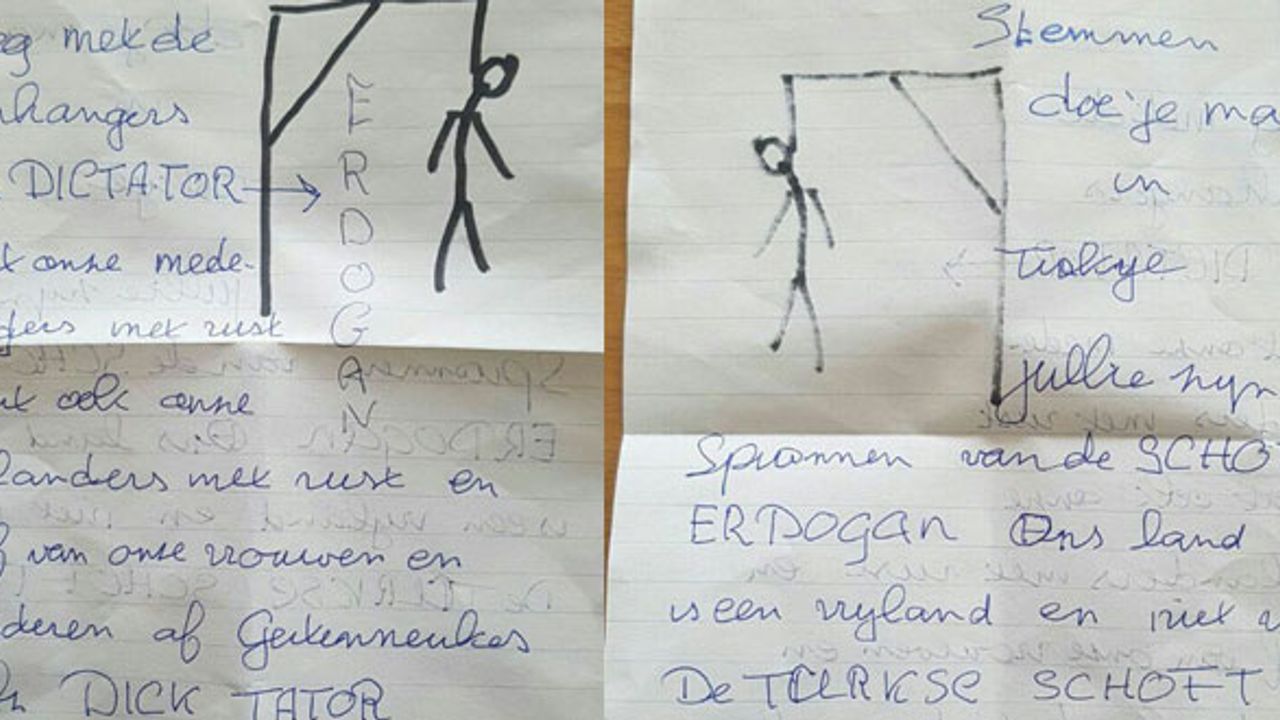 eg met de
nhangers
DICTATOR
ERDOGAN
t onze mede-
ders met rust
ook onze
landers met rust en
van onze vrouwen en
deren af Geitenneukes
DICK TATOR
Stemmen
doe je ma
in
Turkye
jullie zyn
Spionnen van de SCHO
ERDOGAN Ons land
is een vryland en niet v
De TURKSE SCHOFT